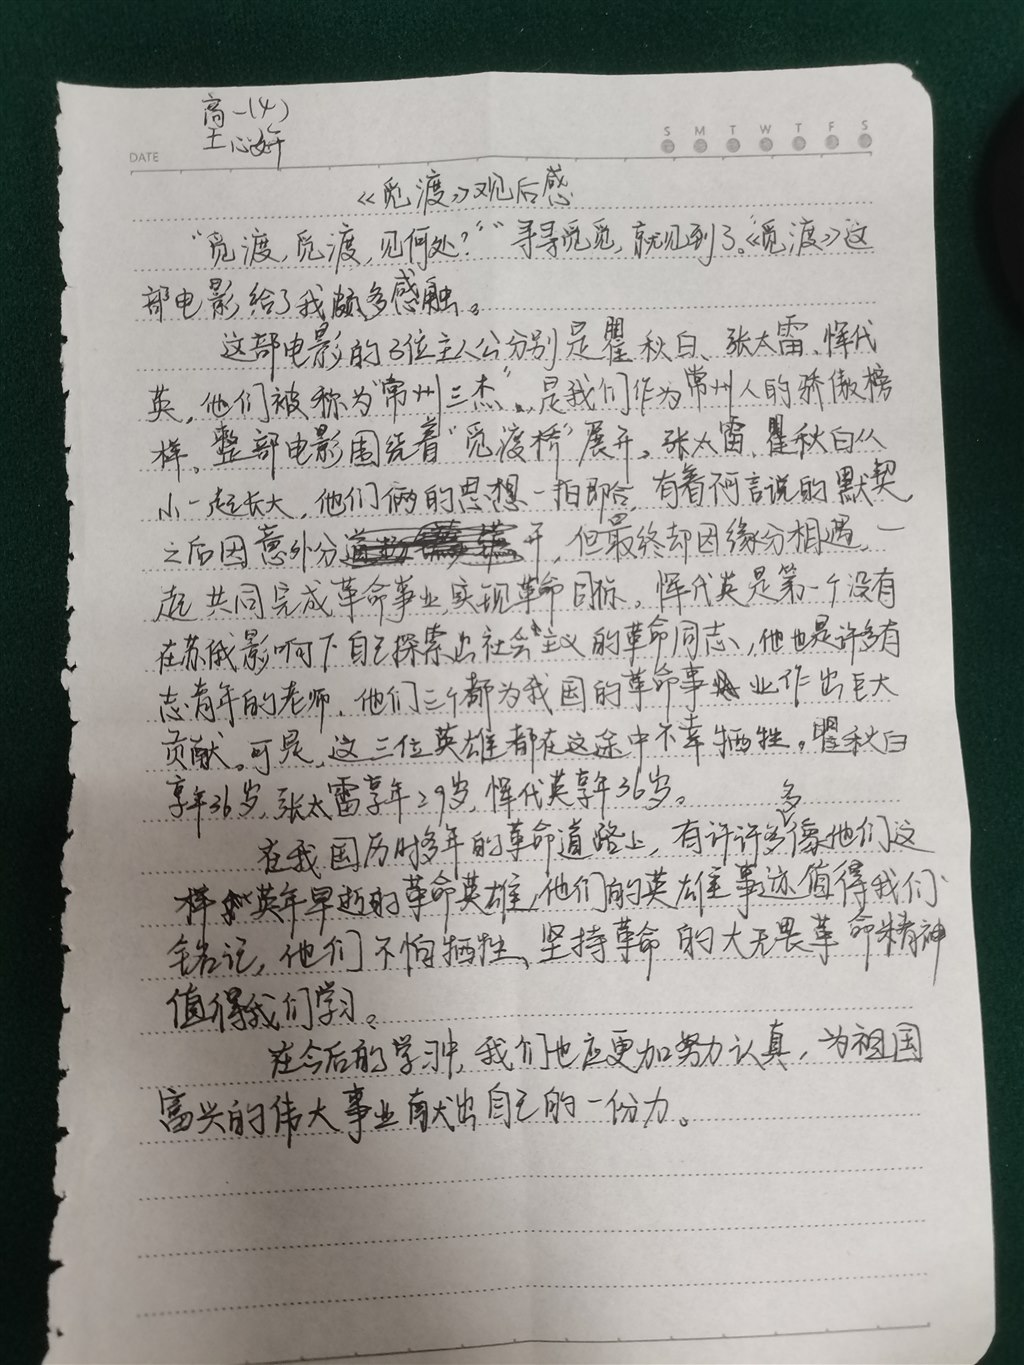 高一(4)
王心妍
DATE
S M T W T F S
《觅渡》观后感
“觅渡,觅渡,见何处?”“寻寻觅觅,就见到了。《觅渡》这
部电影给了我颇多感触。
这部电影的3位主人公分别是瞿秋白、张太雷、恽代
英,他们被称为“常州三杰”。是我们作为常州人的骄傲榜
样。整部电影围绕着“觅渡桥”展开。张太雷、瞿秋白从
小一起长大,他们俩的思想一拍即合,有着何言说的默契,
之后因意外分开,但最终却因缘分相遇,一
起共同完成革命事业,实现革命目标。恽代英是第一个没有
在苏俄影响下自己探索出社会主义的革命同志,他也是许多有
志青年的老师。他们三个都为我国的革命事业作出巨大
贡献。可是,这三位英雄都在这途中不幸牺牲。瞿秋白
享年36岁,张太雷享年29岁,恽代英享年36岁。
在我国历时多年的革命道路上,有许许多多像他们这
样英年早逝的革命英雄,他们的英雄事迹值得我们
铭记,他们不怕牺牲、坚持革命的大无畏革命精神
值得我们学习。
在今后的学习中,我们也应更加努力认真,为祖国
富兴的伟大事业献出自己的一份力。